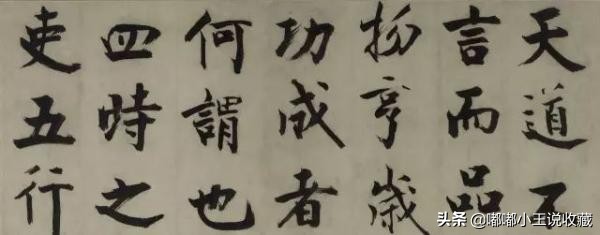 天道不
言而品
物亨歲
功成者
何謂也
四時之
吏五行
头条 @嘟嘟小王说收藏